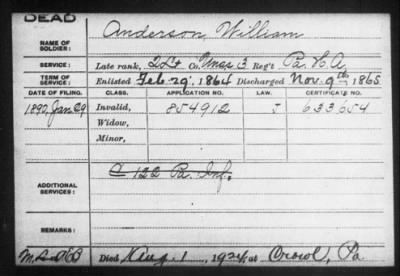 DEAD
NAME OF SOLDIER: Anderson, William
SERVICE: Late rank, 2 Lt Co. Unas 3 Reg't Pa. H. A.
TERM OF SERVICE: Enlisted Feb. 29, 1864 Discharged Nov. 9th 1865
DATE OF FILING. CLASS. APPLICATION NO. LAW. CERTIFICATE NO.
1890, Jan. 29 Invalid, 854912 J 633654
Widow,
Minor,
C 122 Pa. Inf.
ADDITIONAL SERVICES:
REMARKS:
Died Aug. 1, 1924, at Crowl, Pa.